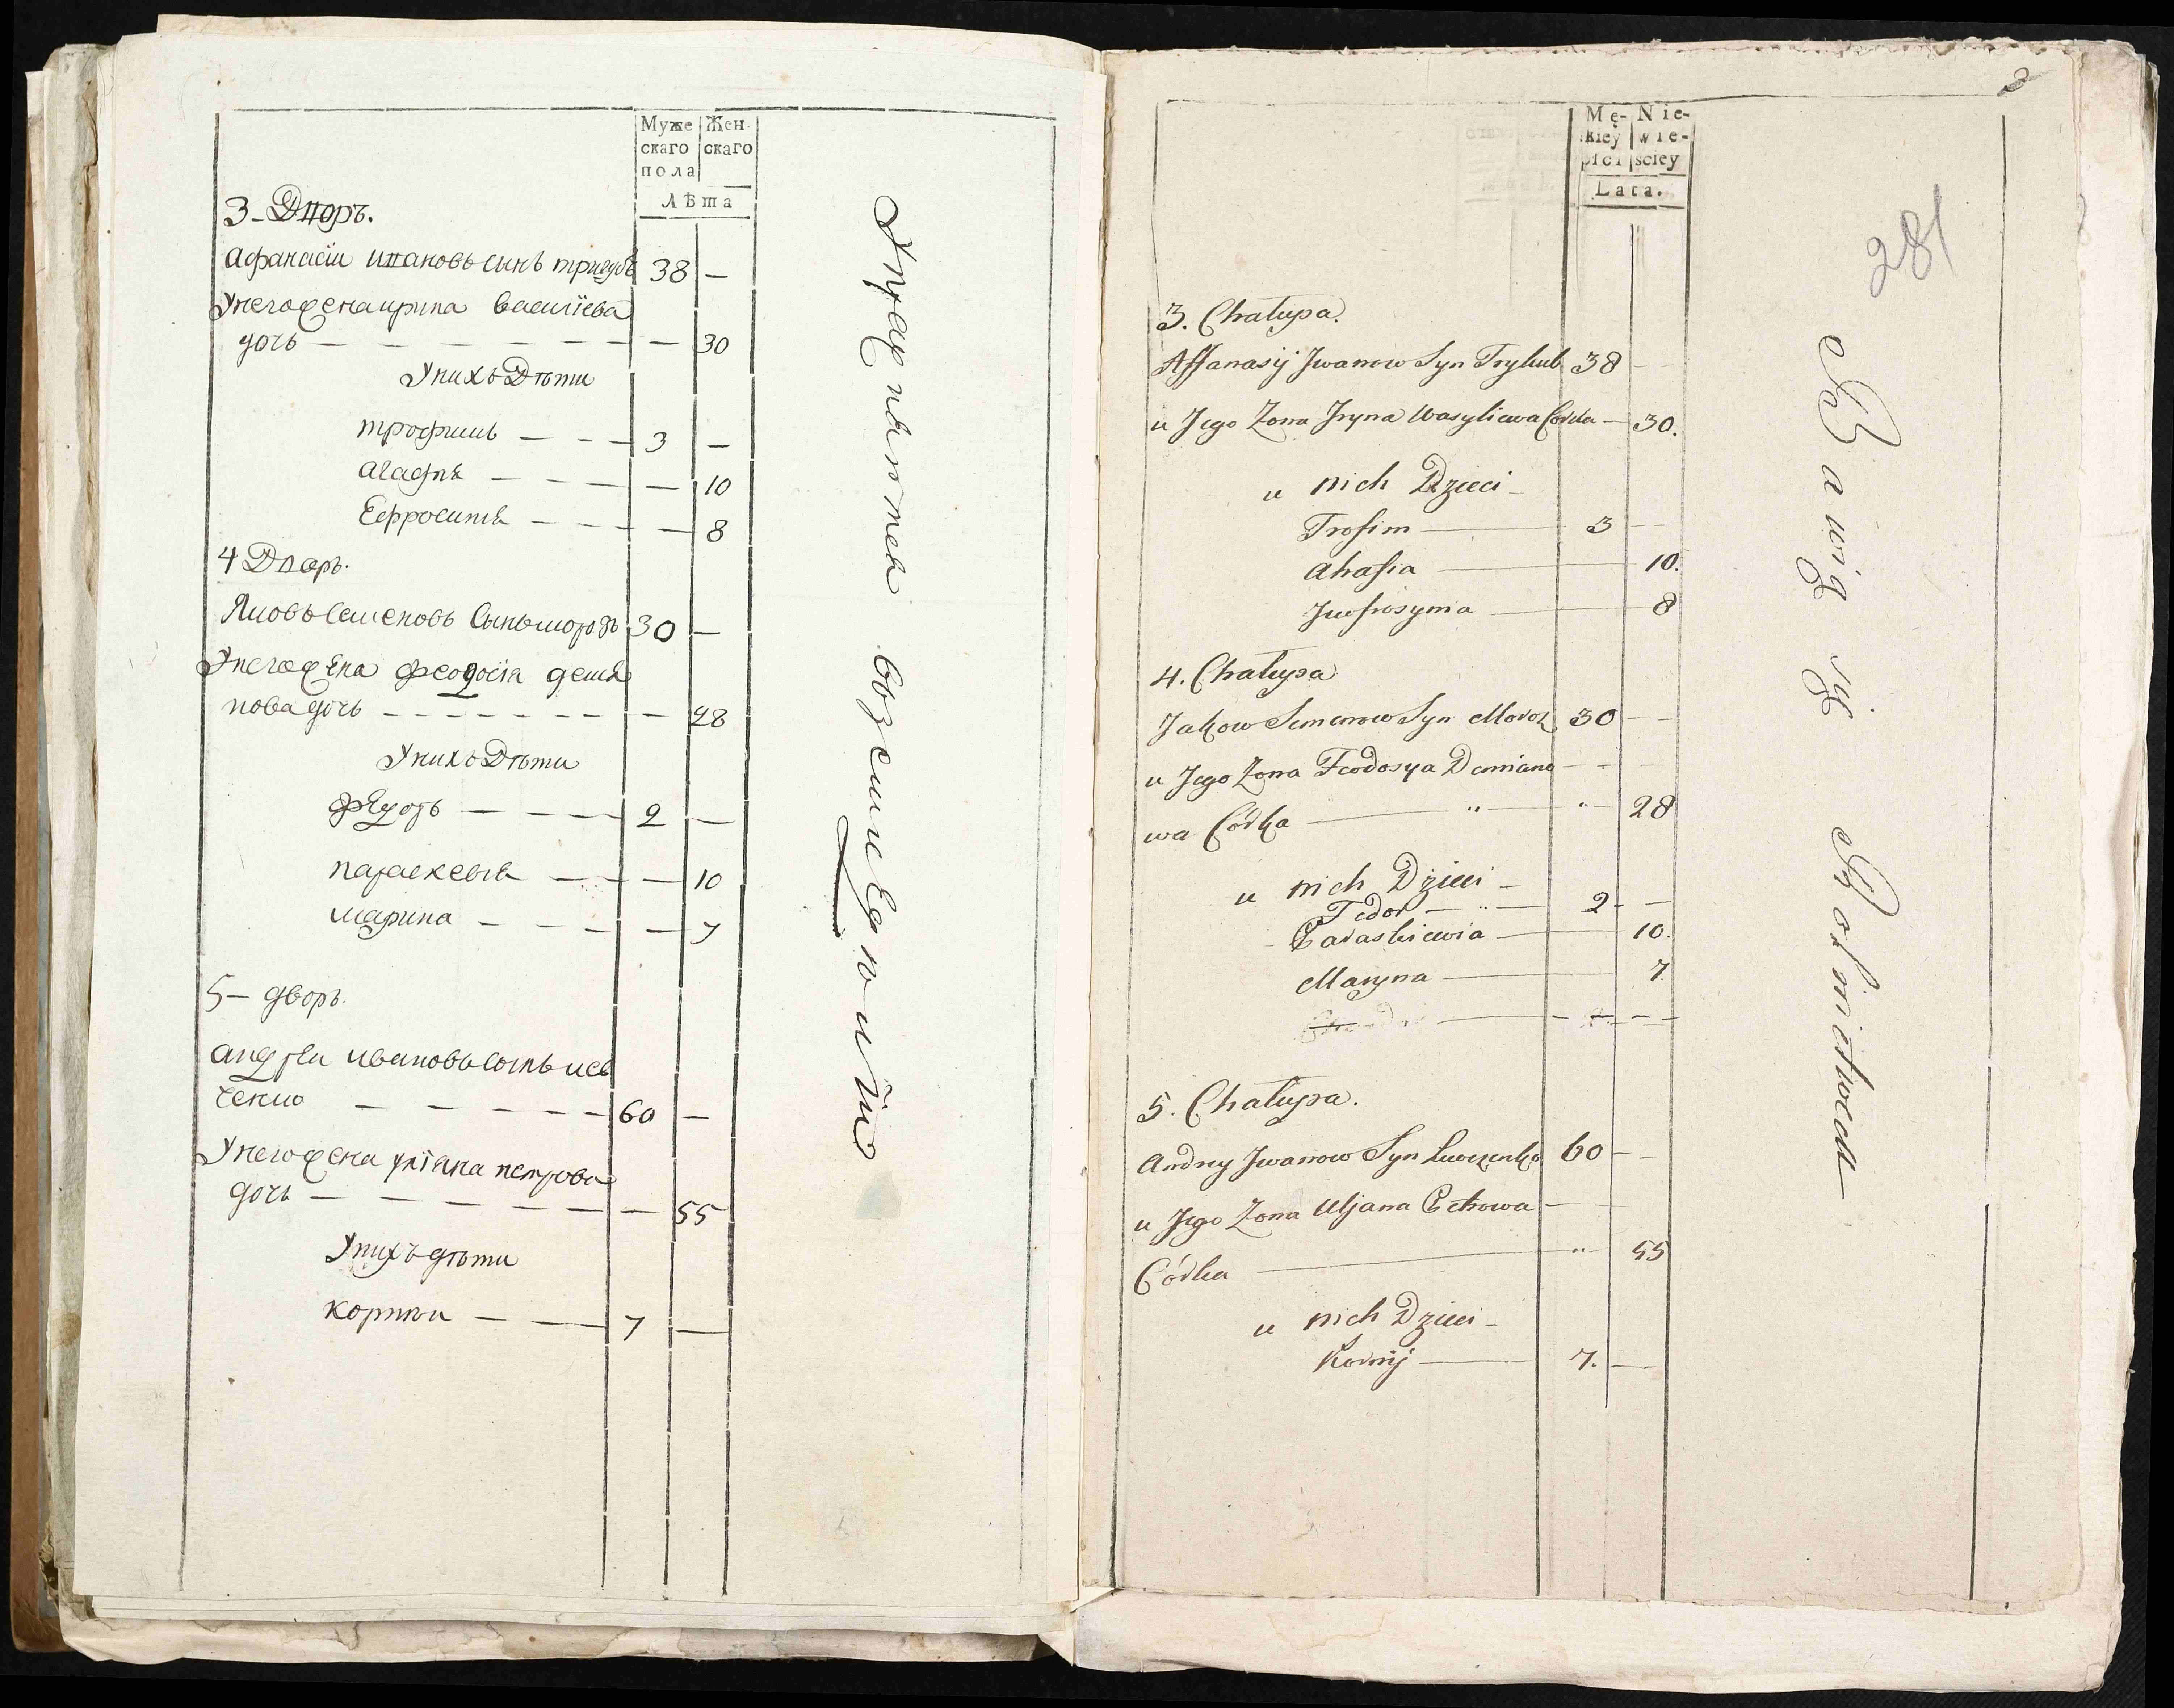 Муже Жен-
скаго скаго
пола
Лѣта
3 - Дворъ.
Афанасїи ивановъ сынъ тригубъ 38 —
Унего жена ирина василїева
дочь — — — — — — — 30
Унихъ Дѣти
трофимъ — — — 3 —
агафия — — — — — 10
Ефросиния — — — — 8
4 Дворъ.
Яковъ Семеновъ Сынъ морозъ 30 —
Унего жена феодосїя демя
нова дочь — — — — — — — 28
Унихъ Дѣти
федоръ — — — — 2 —
параскевия — — — 10
марина — — — — — 7
5 — дворъ.
андреи ивановъ сынъ
ченко — — — — — 60 —
Унего жена улїана петрова
дочь — — — — — — — 55
Унихъ дѣти
корнѣи — — — 7 —
Упражняются возмледелїи
3
281
Mę- Nie-
skiey wie-
płci sciey
Lata.
3. Chałupa.
Affanasij Jwanow Syn Tryhub 38 — —
u Jego Zona Jryna Wasyliewa Córka — 30.
u nich Dzieci —
Trofim — 3 — —
Ahafia — 10.
Jwfrosynia — 8
4. Chałupa
Jakow Semenow Syn Moroz 30 — —
u Jego Zona Feodosya Demiano — — —
wa Córka — " — " — 28
u nich Dzieci —
Fedor — " — 2 — —
Paraskiewia — 10.
Maryna — 7.
5. Chałupa.
Andrey Jwanow Syn 60 — —
u Jego Zona Uljana Petrowa — — —
Córka — " — 55
u nich Dzieci —
Kornij — 7. —
Bawią się Rolnictwem